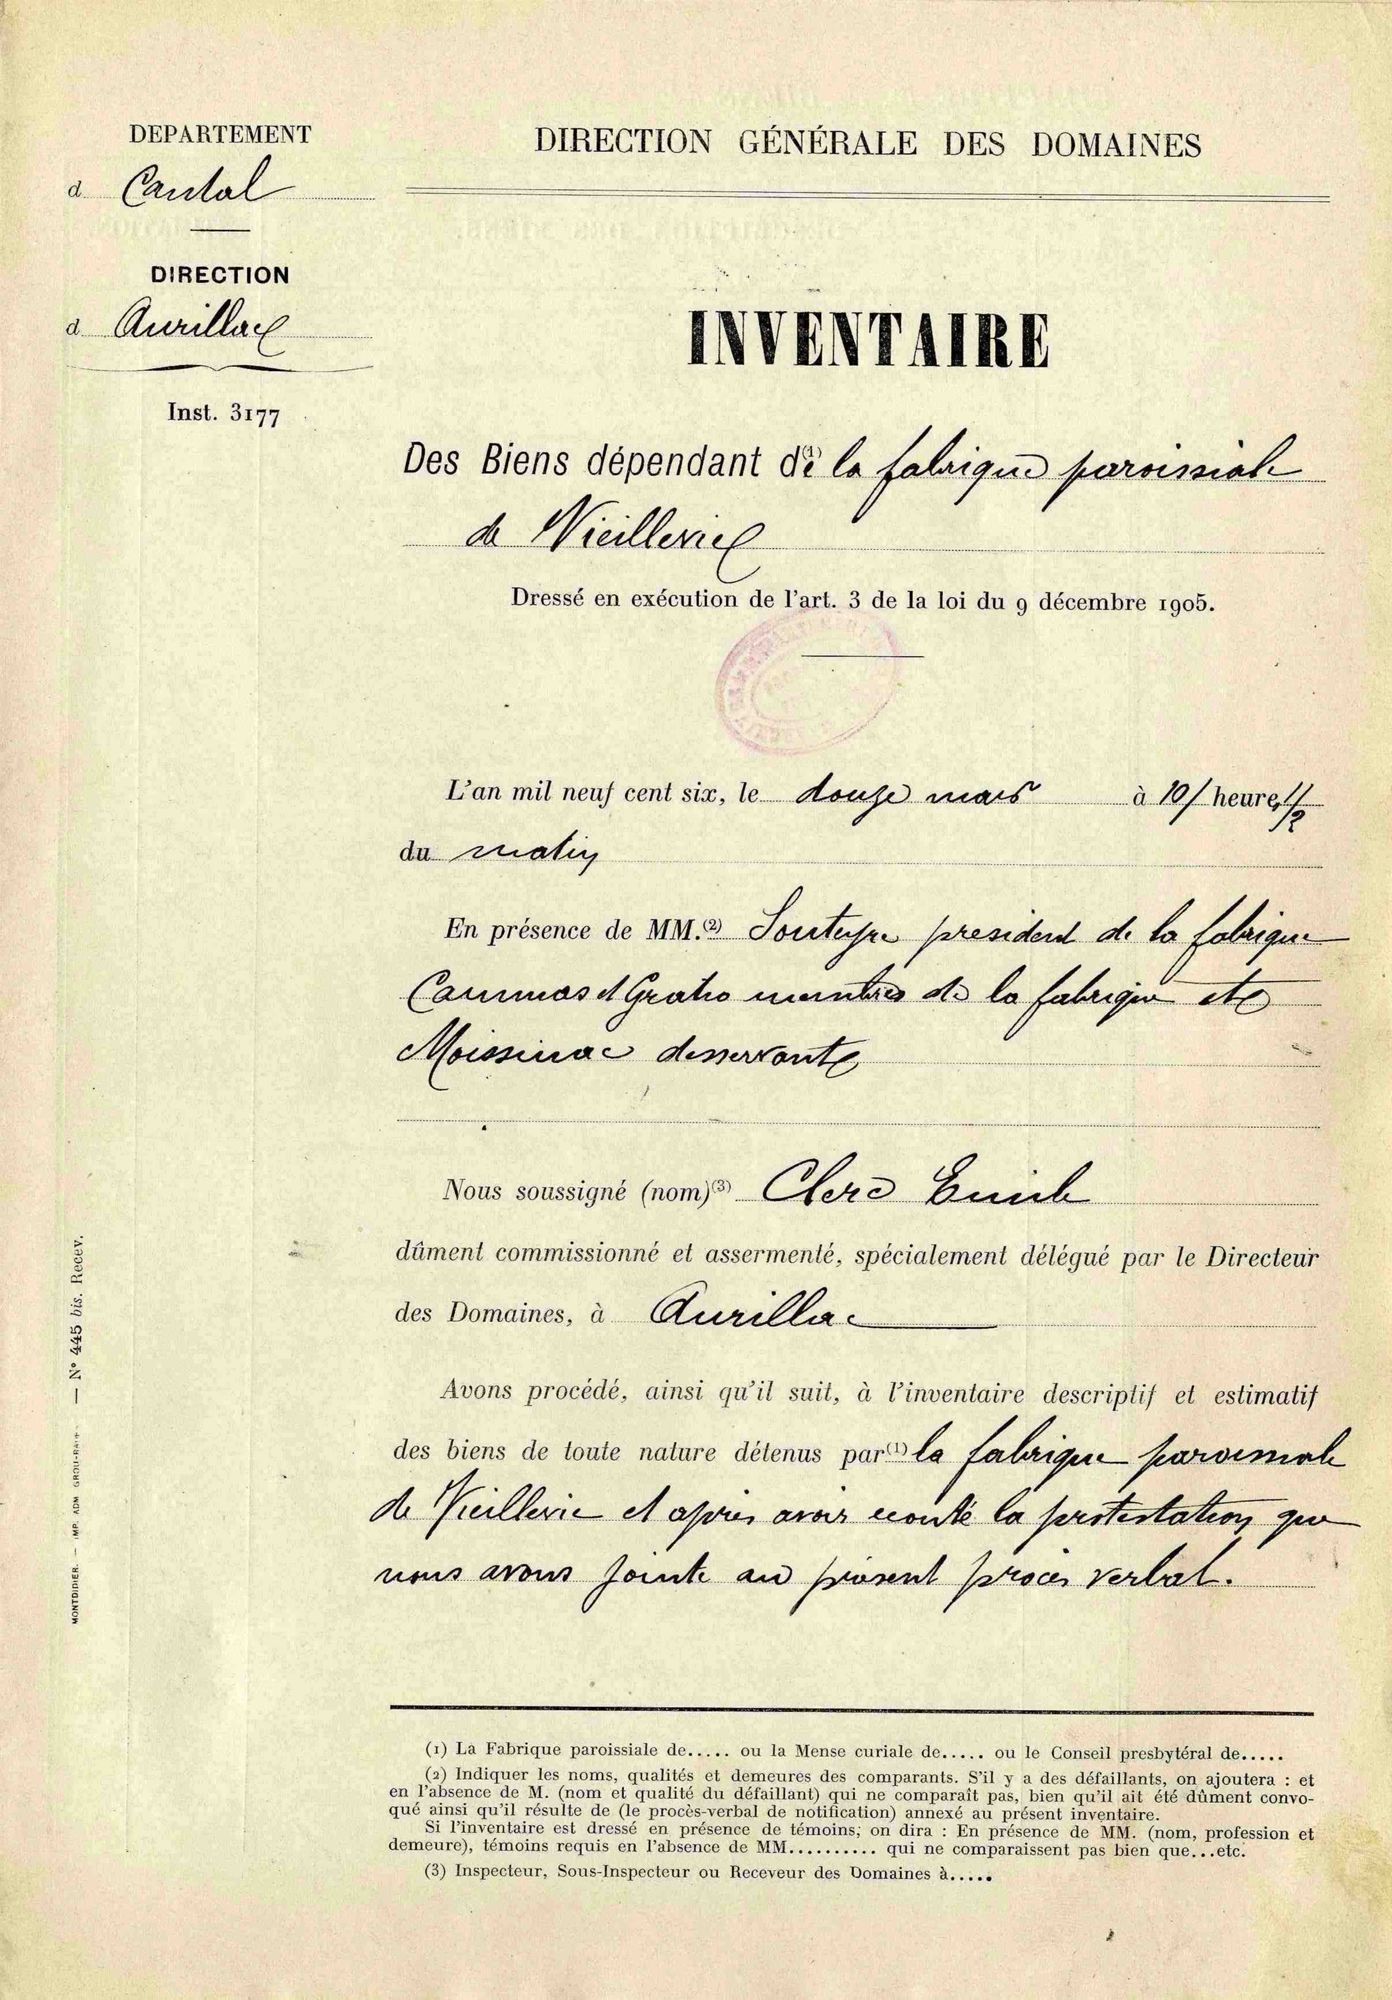 DEPARTEMENT
d Cantal
DIRECTION
d Aurillac
Inst. 3177
DIRECTION GÉNÉRALE DES DOMAINES
INVENTAIRE
Des Biens dépendant de (1) la fabrique paroissiale
de Vieillevie
Dressé en exécution de l'art. 3 de la loi du 9 décembre 1905.
L'an mil neuf cent six, le douze mars à 10/ heures 1/2
du matin
En présence de MM. (2) Souteyre president de la fabrique
Cammas et Gratio membres de la fabrique et
Moissinac desservant
Nous soussigné (nom) (3) Clerc Emile
dûment commissionné et assermenté, spécialement délégué par le Directeur
des Domaines, à Aurillac
Avons procédé, ainsi qu'il suit, à l'inventaire descriptif et estimatif
des biens de toute nature détenus par (1) la fabrique paroissiale
de Vieillevie et après avoir écouté la protestation que
nous avons jointe au présent procès verbal.
(1) La Fabrique paroissiale de..... ou la Mense curiale de..... ou le Conseil presbytéral de.....
(2) Indiquer les noms, qualités et demeures des comparants. S'il y a des défaillants, on ajoutera : et
en l'absence de M. (nom et qualité du défaillant) qui ne comparaît pas, bien qu'il ait été dûment convo-
qué ainsi qu'il résulte de (le procès-verbal de notification) annexé au présent inventaire.
Si l'inventaire est dressé en présence de témoins, on dira : En présence de MM. (nom, profession et
demeure), témoins requis en l'absence de MM.......... qui ne comparaissent pas bien que...etc.
(3) Inspecteur, Sous-Inspecteur ou Receveur des Domaines à.....
MONTDIDIER. — IMP. ADM — N° 445 bis. Recev.